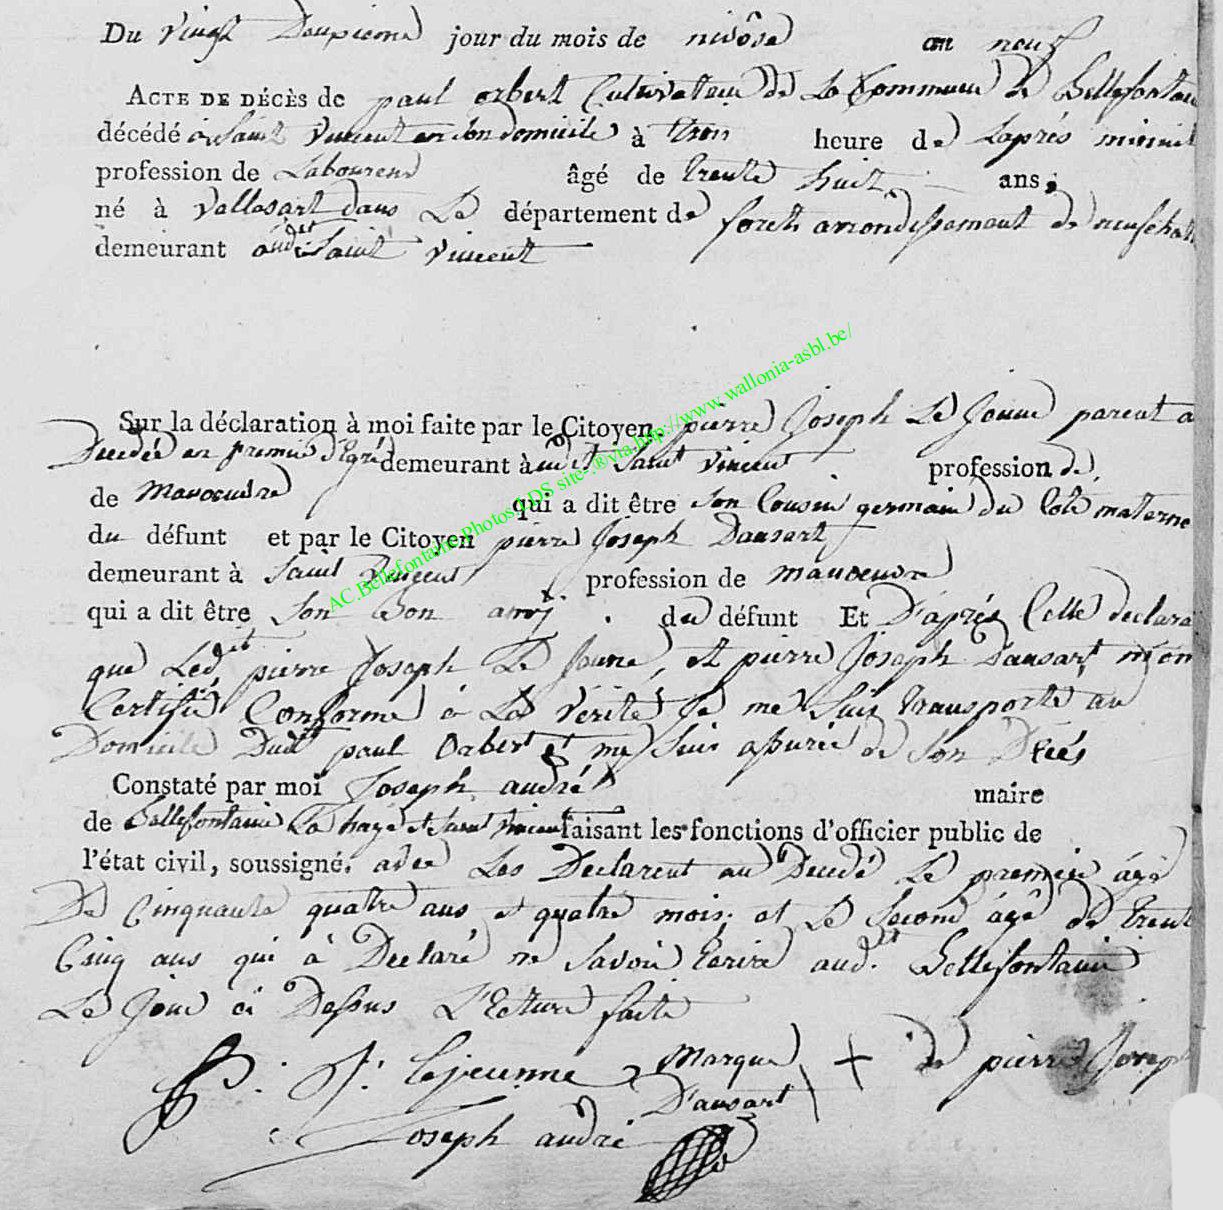 Du vingt Deuxieme jour du mois de nivôse an neuf
ACTE DE DÉCÈS de paul orbert Cultivateur de La Commune de Bellefontaine
décédé a Saint Vincent en son domicile à trois heure de Laprès minuit
profession de Laboureur âgé de trente huit ans;
né à Vallasart dans Le département de forets arrondissement de neufchat
demeurant audit Saint Vincent
Sur la déclaration à moi faite par le Citoyen pierre Joseph Le Jeune parent a
Decedée en premier degré demeurant à audit Saint Vincent profession de
de Manoeuvre qui a dit être son Cousin germain du Coté materne
du défunt et par le Citoyen pierre Joseph Dausart
demeurant à Saint Vincent profession de manoeuvre
qui a dit être Son Bon amÿ du défunt Et D'après Cette declara
que Ledit pierre Joseph Le Jeune, et pierre Joseph Dausart m'on
Certifié Conforme à La Vérité Je me Suis transporté au
Domicile Dudit paul Orbert et me Suis assurée de Son Decés
Constaté par moi Joseph andré maire
de Bellefontaine La haye et Saint Vincent faisant les fonctions d'officier public de
l'état civil, soussigné. avec Les Declarent au Decedé Le premier ágé
De Cinquante quatre ans et quatre mois; et Le Second ágé de trente
Cinq ans qui à Declaré ne Savoir Ecrire aud.it Bellefontaine
Le Jour ci Dessus L'Ecture faite
P: J: Lejeunne Marque + de pierre Josep
D'ausart
Joseph andré
AC.Bellefontaine.Photos.LDS site-.®via.http://www.wallonia-asbl.be/